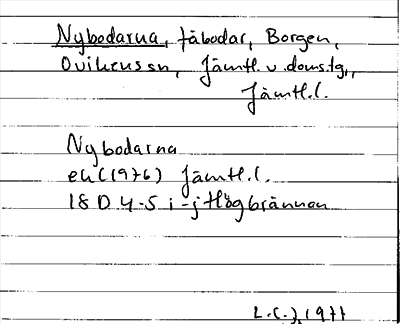 Nybodarna, fäbodar, Borgen,
Ovikens sn, Jämtl. v. doms.tg,,
Jämtl.l.
Nybodarna
ek (1976) Jämtl.l.
18 D 4-5 i-j Högbrännan
L.C.), 1977